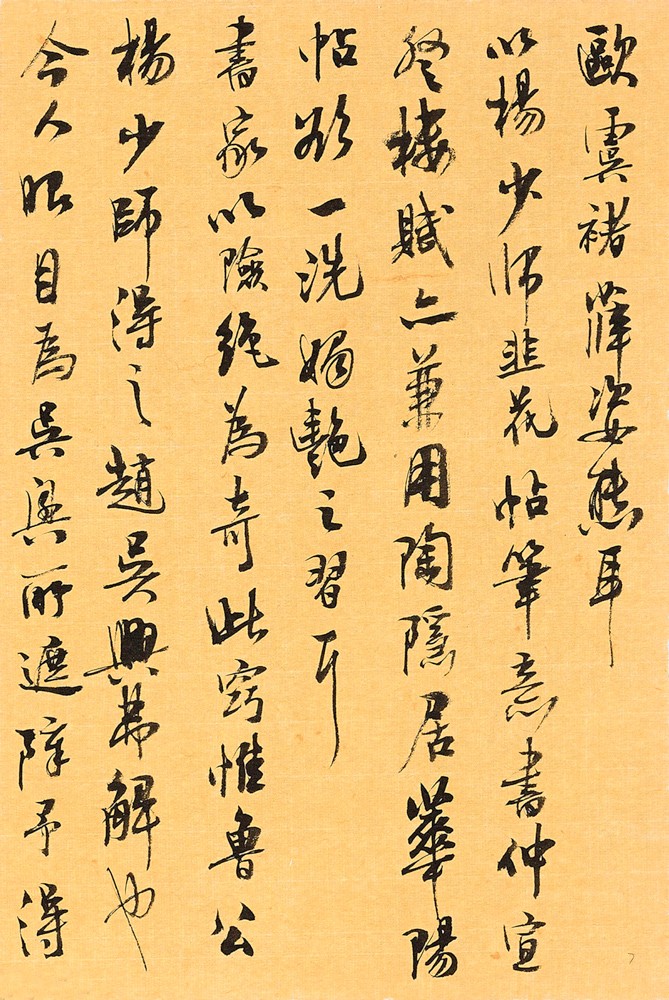 歐虞褚薛姿態耳
以楊少師韭花帖筆意書仲宣
登樓賦亦兼用陶隱居華陽
帖欲一洗媚艷之習耳
書家以險絕為奇此竅惟魯公
楊少師得之趙吳興弗解也
今人眼目為吳興所遮障予得